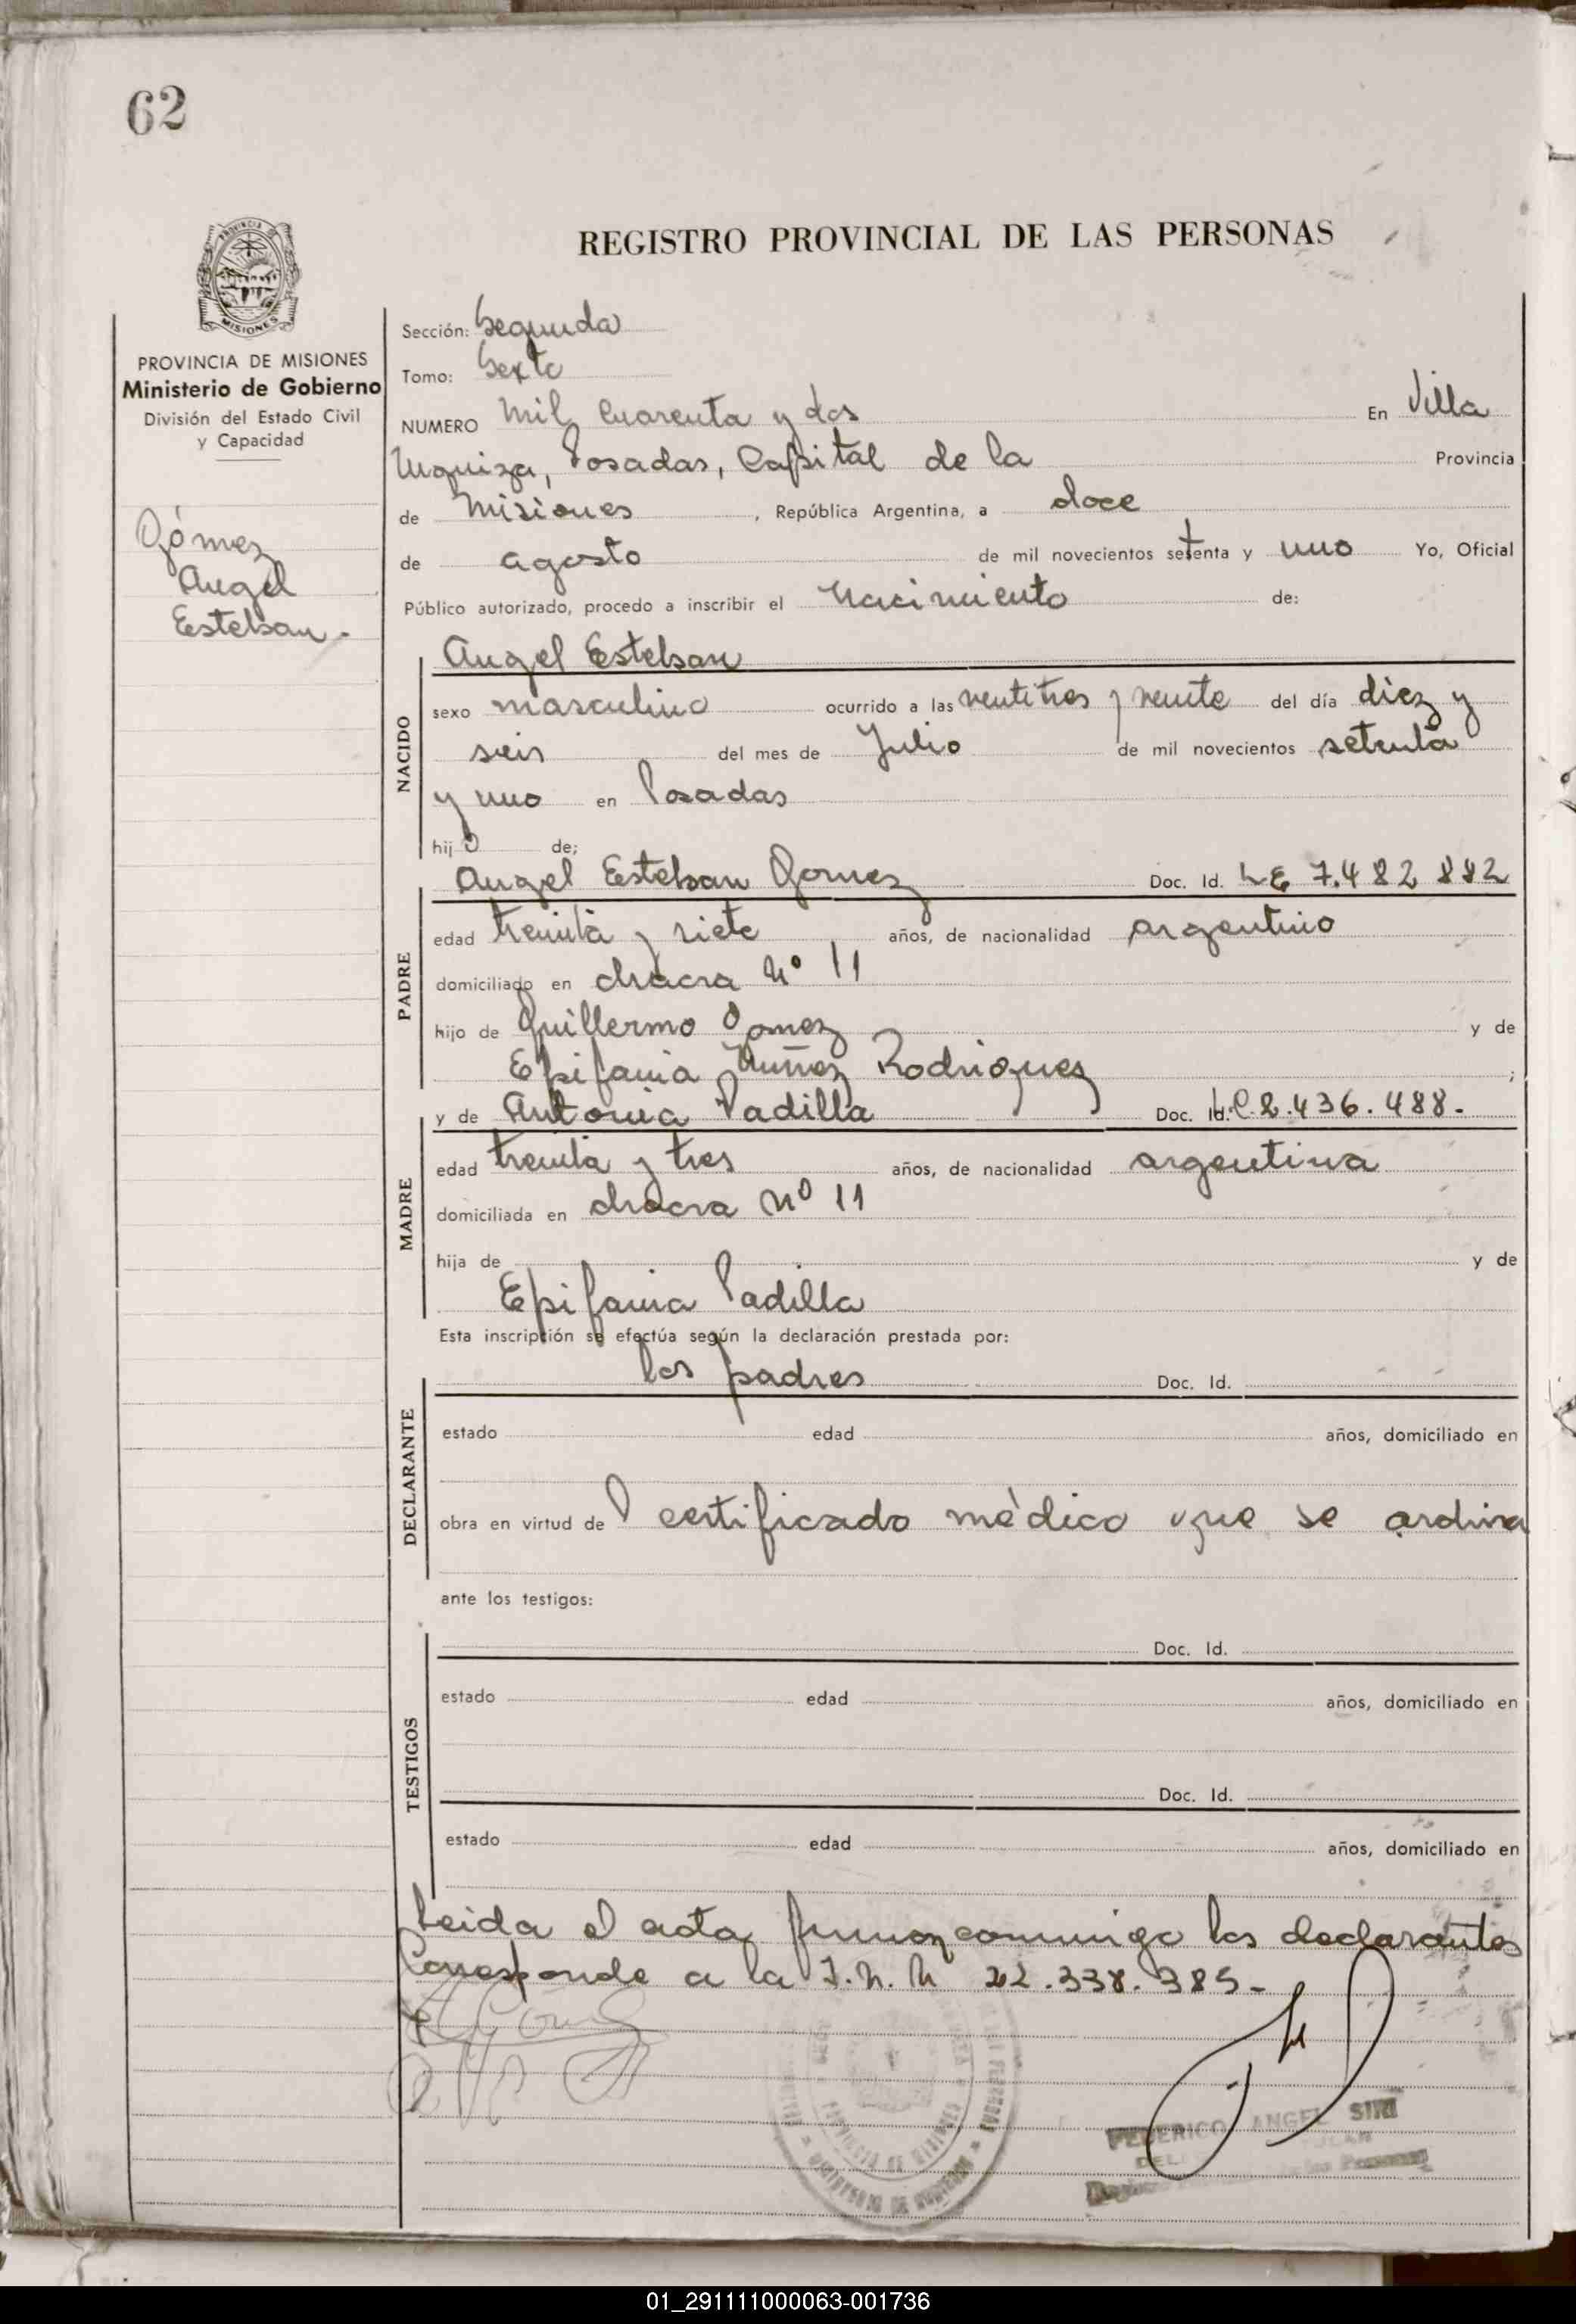 62
REGISTRO PROVINCIAL DE LAS PERSONAS
PROVINCIA DE
MISIONES
PROVINCIA DE MISIONES
Ministerio de Gobierno
División del Estado Civil
y Capacidad
Gómez
Angel
Esteban.
Sección: Segunda
Tomo: Sexto
NUMERO Mil Cuarenta y dos En Villa
Urquiza, Posadas, Capital de la Provincia
de Misiones, República Argentina, a doce
de agosto de mil novecientos setenta y uno Yo, Oficial
Público autorizado, procedo a inscribir el Nacimiento de:
Angel Esteban
NACIDO
sexo masculino ocurrido a las ventitres y veinte del día diez y
seis del mes de Julio de mil novecientos setenta
y uno en Posadas
hijo de;
Angel Esteban Gomez Doc. Id. LE 7.482 882
PADRE
edad treinta y siete años, de nacionalidad argentino
domiciliado en chacra Nº 11
hijo de Guillermo Gomez y de
Epifania Nuñez Rodriguez ;
y de Antonia Padilla Doc. Id. LC.2.436.488.
MADRE
edad treinta y tres años, de nacionalidad argentina
domiciliada en chacra Nº 11
hija de y de
Epifania Padilla
Esta inscripción se efectúa según la declaración prestada por:
los padres Doc. Id.
DECLARANTE
estado edad años, domiciliado en
obra en virtud de l certificado médico que se archiva
ante los testigos:
Doc. Id.
TESTIGOS
estado edad años, domiciliado en
Doc. Id.
estado edad años, domiciliado en
Leida el acta firman conmigo los declarantes
Corresponde a la I.N.N 22.338.385-
FEDERICO ANGEL SIRI
01_291111000063-001736